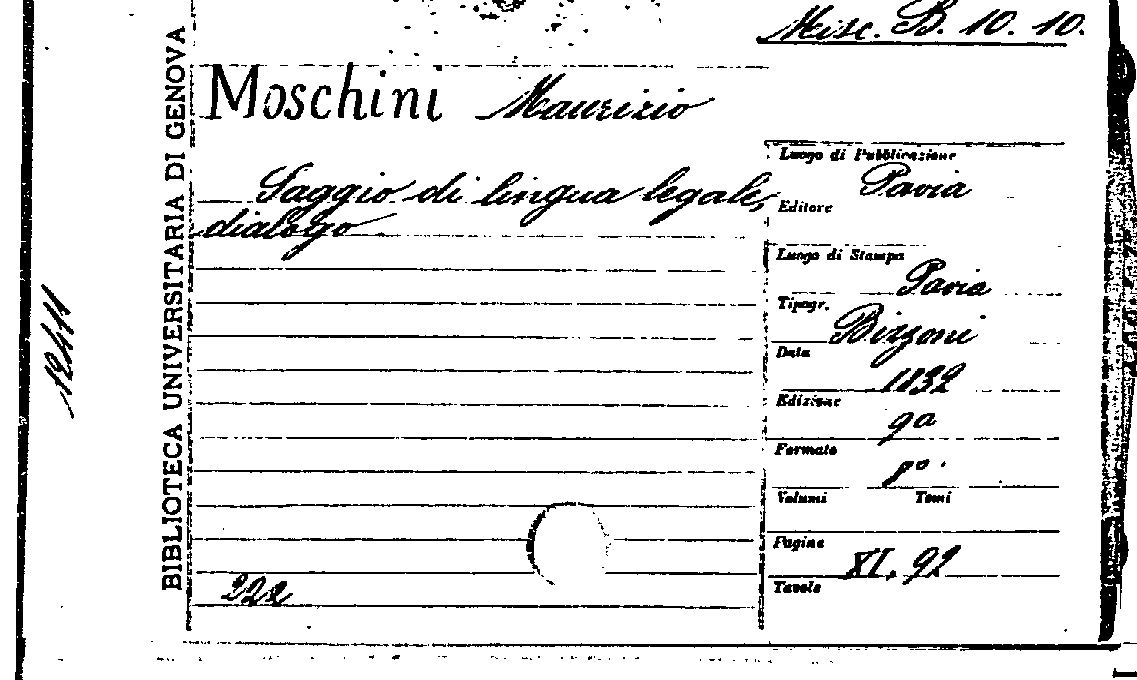 Misc. B. 10. 10.
Moschini Maurizio
Saggio di lingua legale,
dialogo
222
Luogo di Pubblicazione
Pavia
Editore
Luogo di Stampa
Pavia
Tipogr.
Bizzoni
Data
1832
Edizione
9a
Formato
8°
Volumi Tomi
Pagine
XI, 92
Tavole
BIBLIOTECA UNIVERSITARIA DI GENOVA